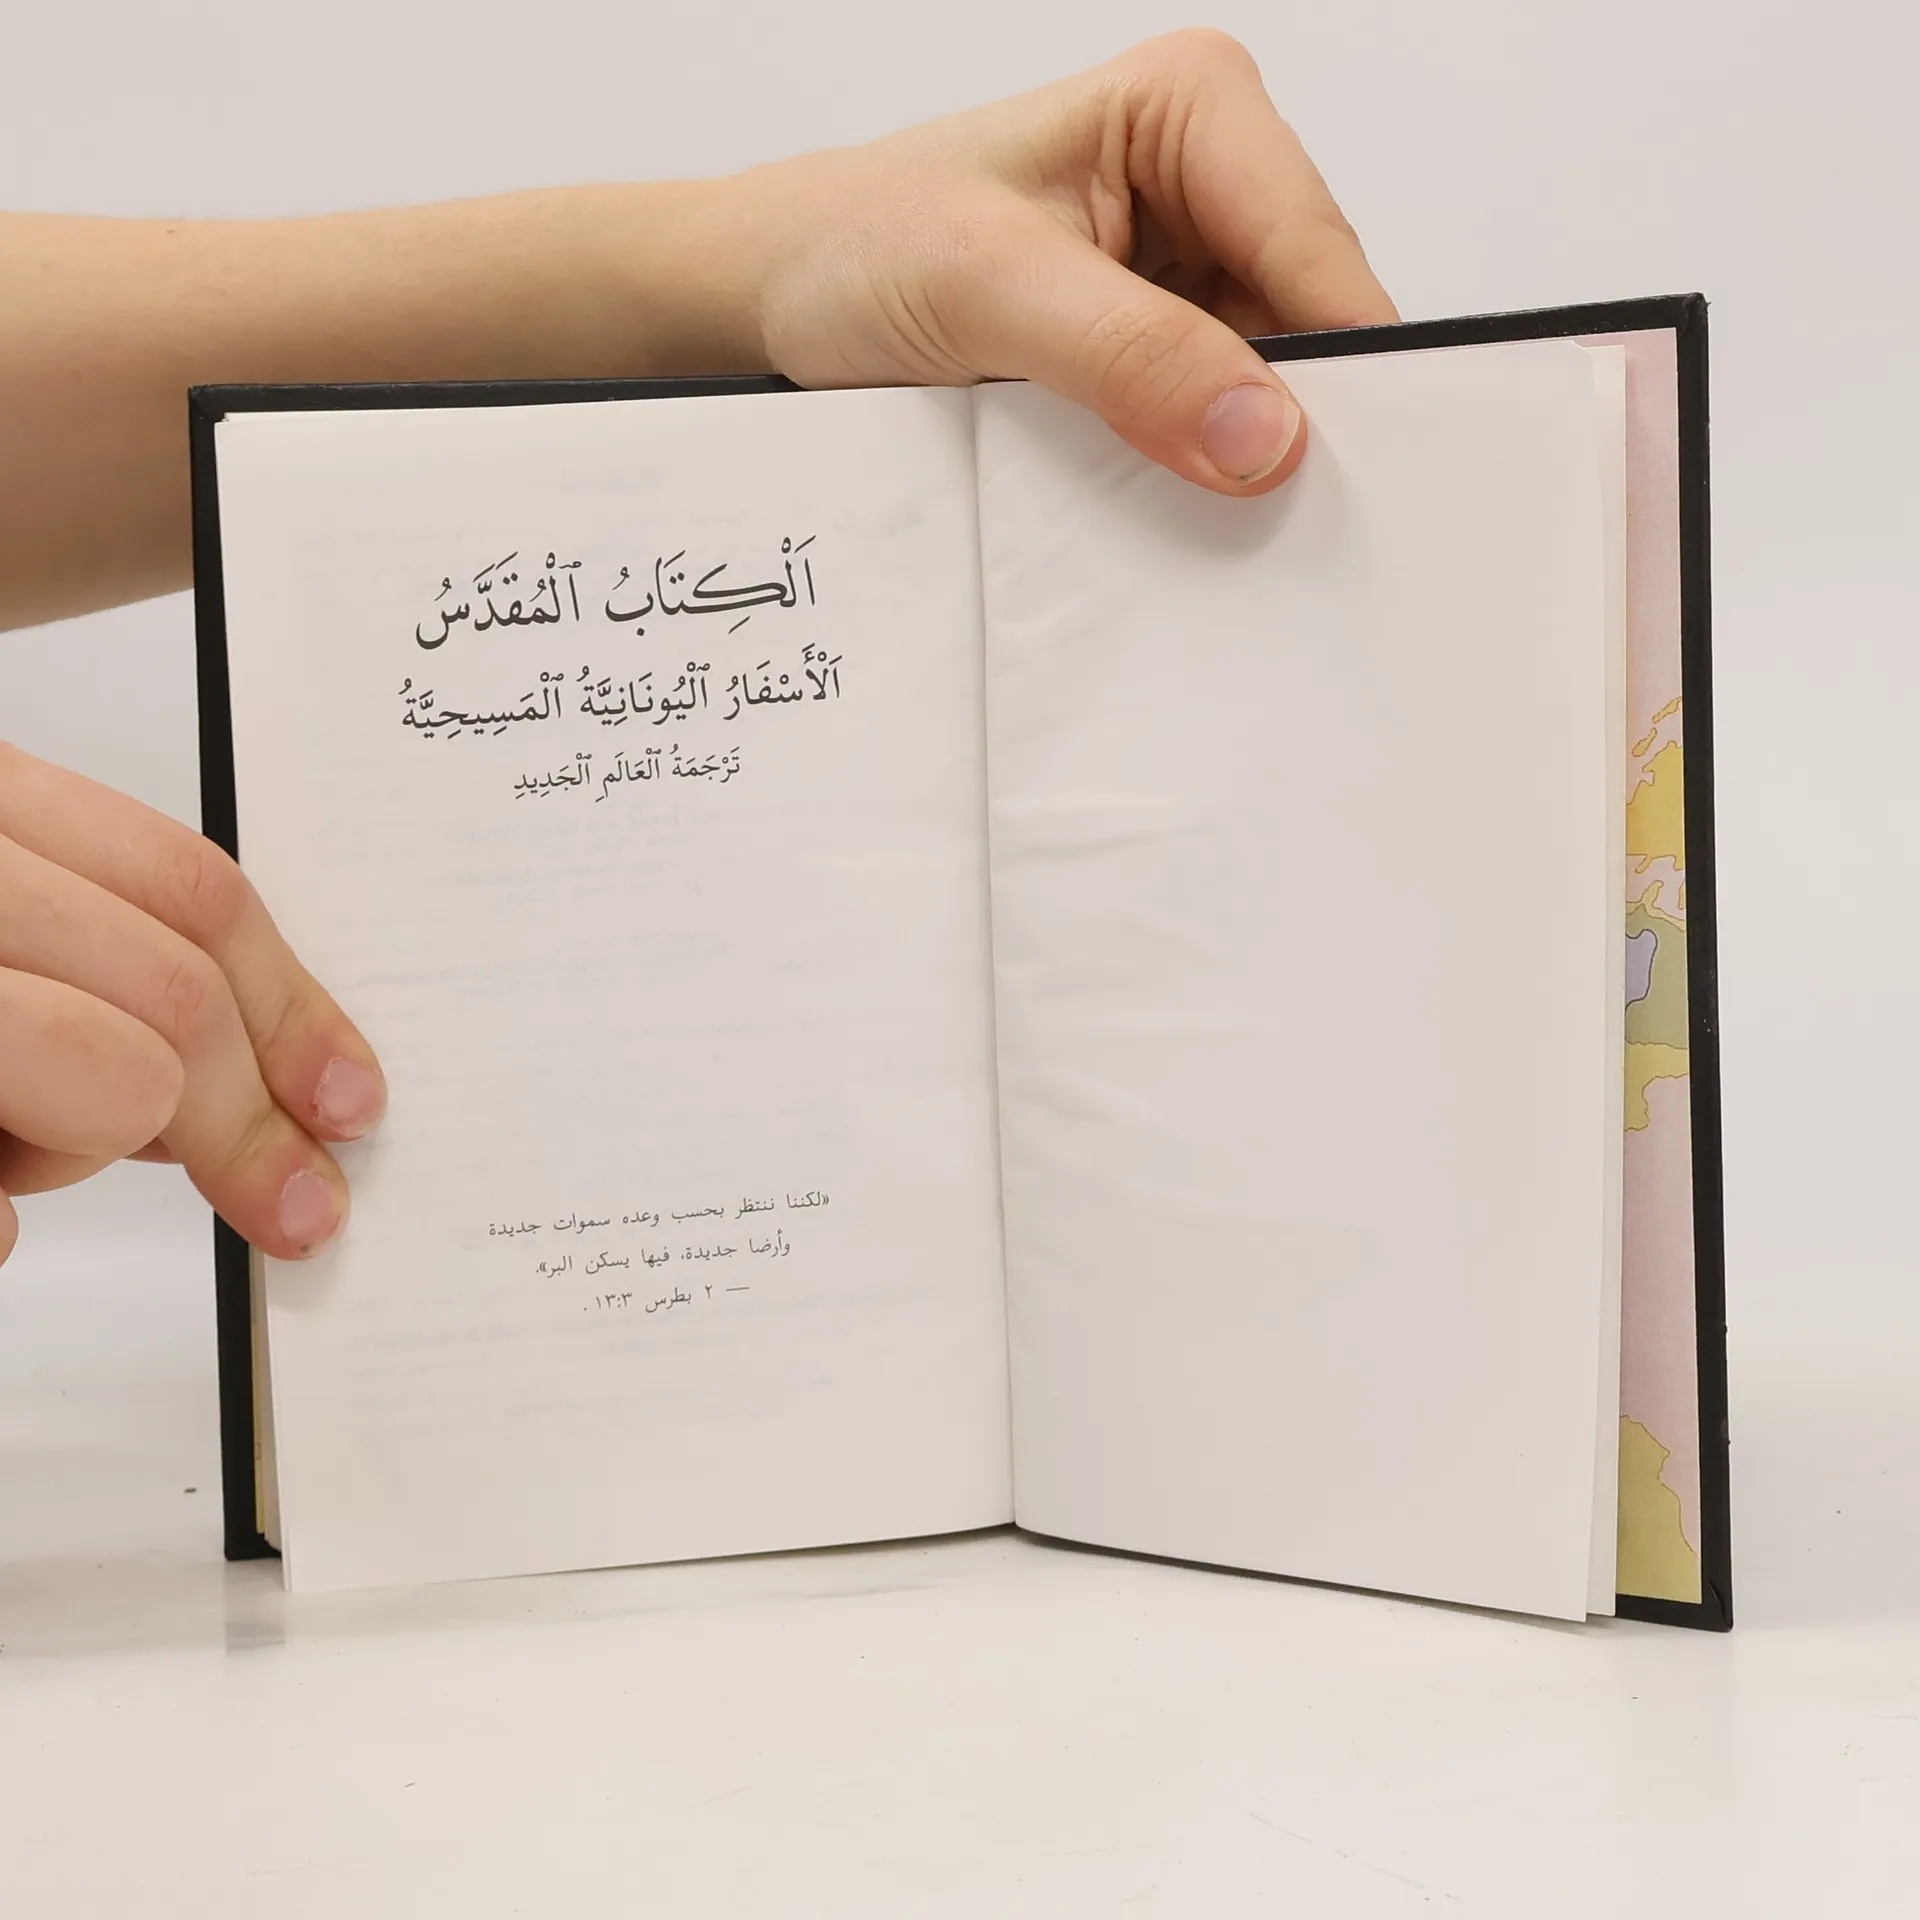 اَلْكِتَابُ ٱلْمُقَدَّسُ
اَلْأَسْفَارُ ٱلْيُونَانِيَّةُ ٱلْمَسِيحِيَّةُ
تَرْجَمَةُ ٱلْعَالَمِ ٱلْجَدِيدِ
«لكننا ننتظر بحسب وعده سموات جديدة
وأرضا جديدة، فيها يسكن البر».
— ٢ بطرس ٣:١٣.